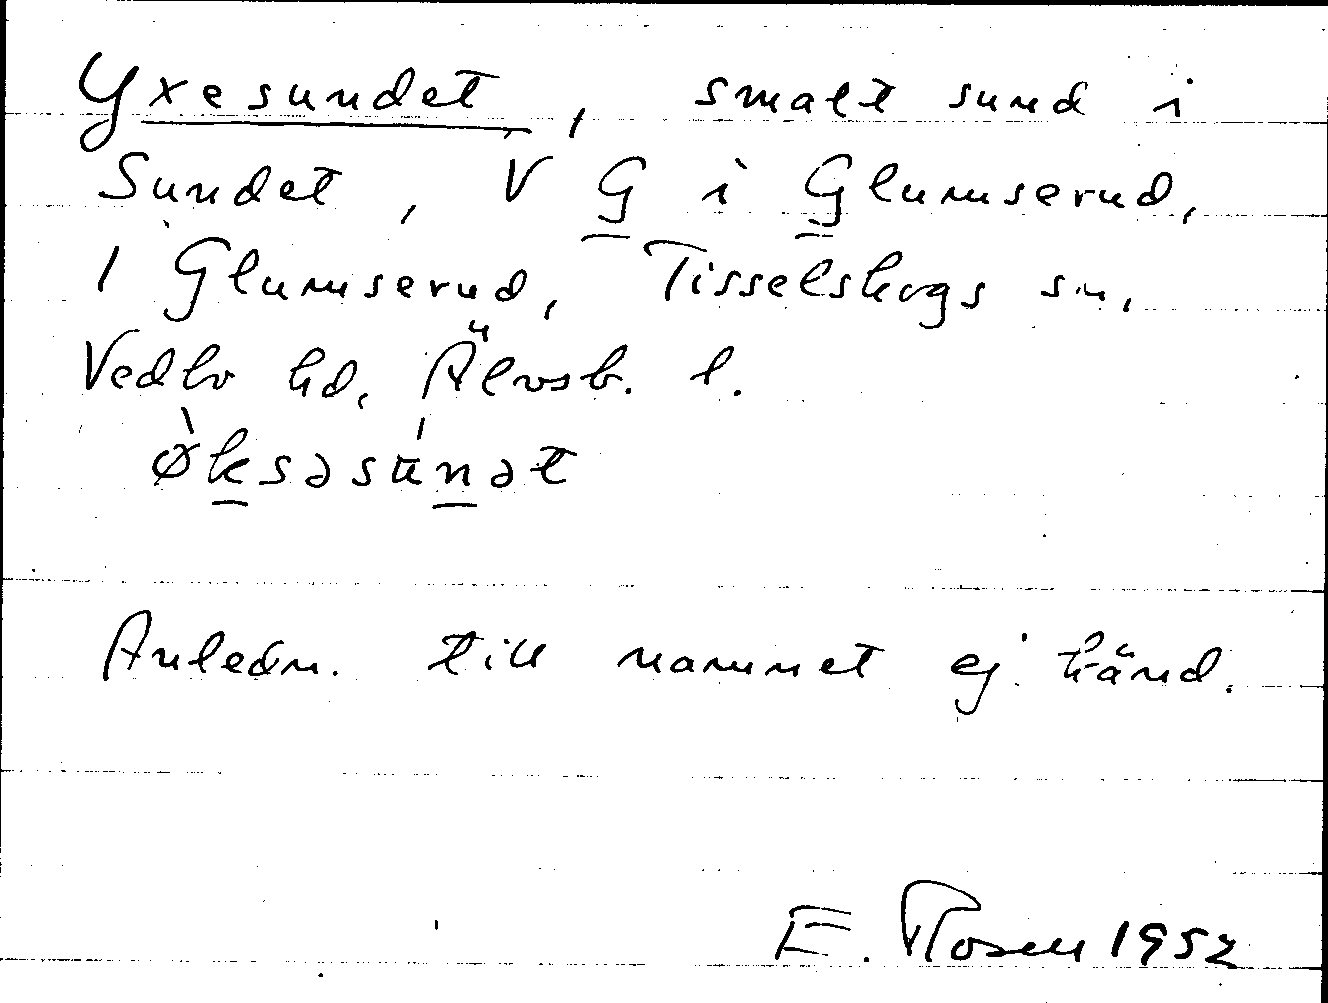 Yxesundet, smalt sund i
Sundet, V G i Glumserud,
1 Glumserud, Tisselskogs sn,
Vedbo hd, Älvsb. l.
ø̀ksəsúnət
Anledn. till namnet ej känd.
E. Rosen 1952